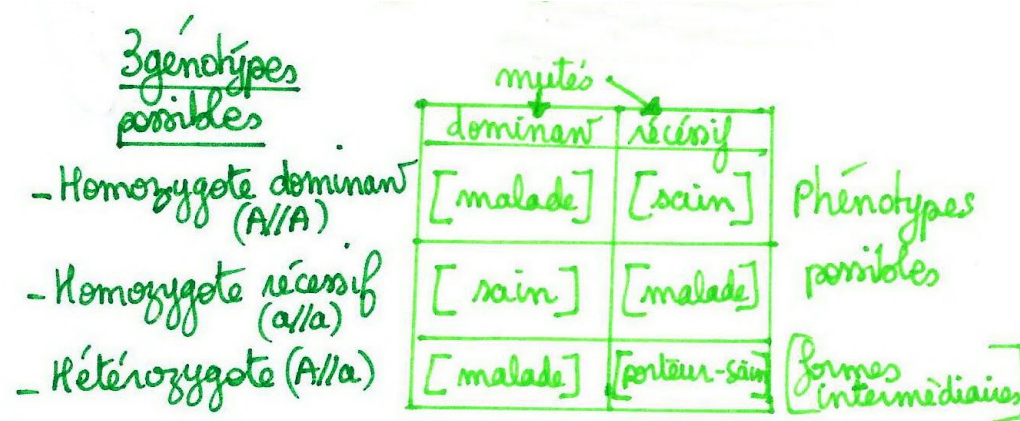 3génotypes
possibles
mutés
dominant récéssif
- Homozygote dominant [malade] [sain] Phénotypes
(A//A)
possibles
- Homozygote récessif [sain] [malade]
(a//a)
- Hétérozygote (A//a) [malade] [porteur-sain] [formes
intermédiaires]